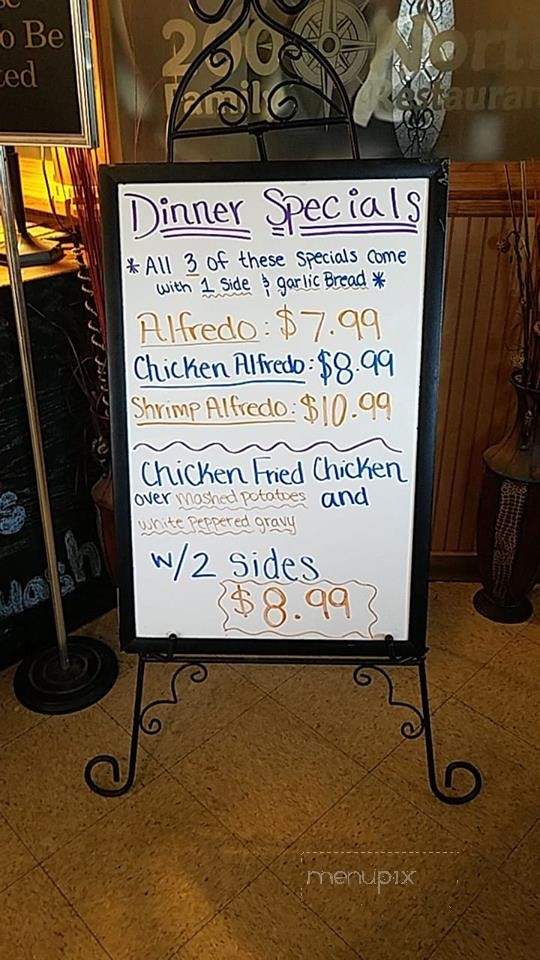 o Be
ted
200 North
Family Restaurant
Dinner Specials
* All 3 of these Specials Come
with 1 Side & garlic Bread *
Alfredo: $7.99
Chicken Alfredo: $8.99
Shrimp Alfredo: $10.99
Chicken Fried Chicken
over mashed potatoes and
white peppered gravy
w/2 Sides
$8.99
menupix